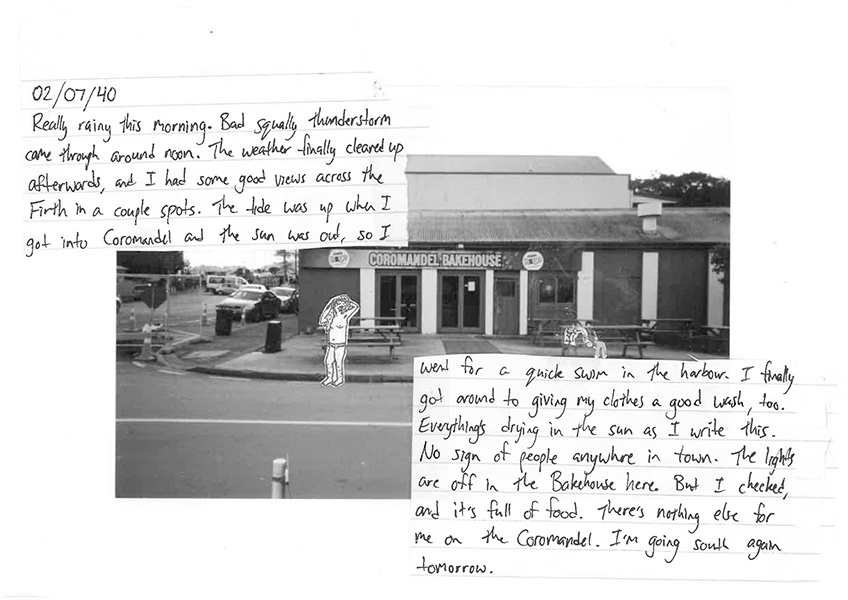 02/07/40
Really rainy this morning. Bad squally thunderstorm
came through around noon. The weather finally cleared up
afterwards, and I had some good views across the
Firth in a couple spots. The tide was up when I
got into Coromandel and the sun was out, so I
COROMANDEL BAKEHOUSE
went for a quick swim in the harbour. I finally
got around to giving my clothes a good wash, too.
Everything's drying in the sun as I write this.
No sign of people anywhere in town. The lights
are off in the Bakehouse here. But I checked,
and it's full of food. There's nothing else for
me on the Coromandel. I'm going south again
tomorrow.